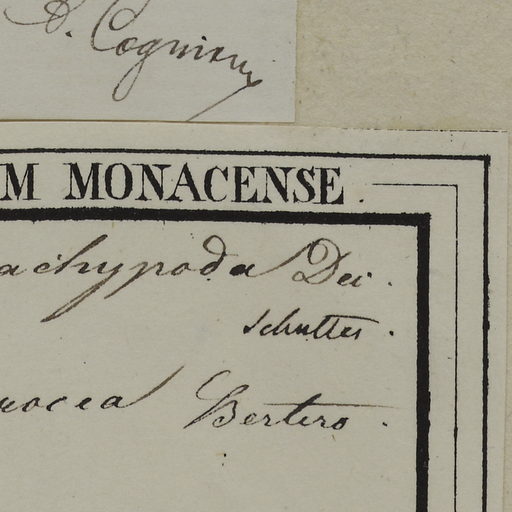 A. Cogniaux
M MONACENSE.
achypoda Dei.
Schultes.
rocea Bertero.